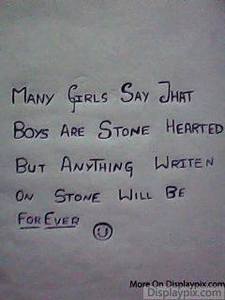 MANY GIRLS SAY THAT
BOYS ARE STONE HEARTED
BUT ANYTHING WRITEN
ON STONE WILL BE
FOREVER
More On Displaypix.com
Displaypix.com